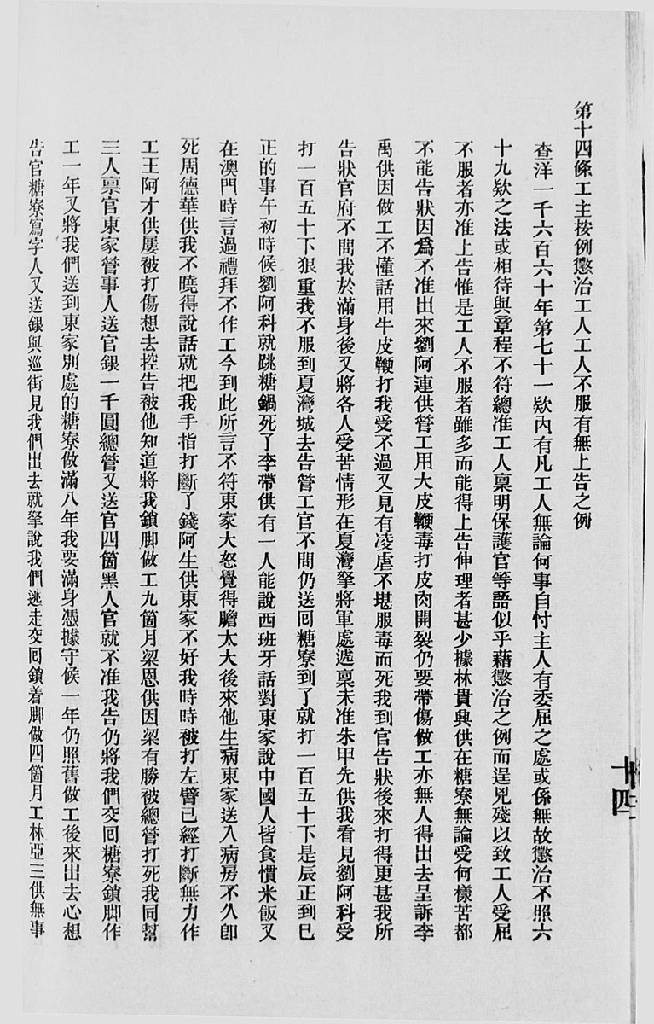 第十四條工主按例懲治工人工人不服有無上告之例
查洋一千六百六十年第七十一欵內有凡工人無論何事自忖主人有委屈之處或係無故懲治不照六
十九欵之法或相待與章程不符總准工人稟明保護官等語似乎藉懲治之例而逞兇殘以致工人受屈
不服者亦准上告惟是工人不服者雖多而能得上告伸理者甚少據林貴興供在糖寮無論受何樣苦都
不能告狀因爲不准出來劉阿連供管工用大皮鞭毒打皮肉開裂仍要帶傷做工亦無人得出去呈訴李
禹供因做工不懂話用牛皮鞭打我受不過又見有凌虐不堪服毒而死我到官告狀後來打得更甚我所
告狀官府不問我於滿身後又將各人受苦情形在夏灣拏將軍處遞稟未准朱甲先供我看見劉阿科受
打一百五十下狠重我不服到夏灣城去告管工官不問仍送回糖寮到了就打一百五十下是辰正到巳
正的事午初時候劉阿科就跳糖鍋死了李帶供有一人能說西班牙話對東家說中國人皆食慣米飯又
在澳門時言過禮拜不作工今到此所言不符東家大怒覺得膽大大後來他生病東家送入病房不久卽
死周德華供我不曉得說話就把我手指打斷了錢阿生供東家不好我時時被打左臂已經打斷無力作
工王阿才供屢被打傷想去控告被他知道將我鎖脚做工九箇月梁恩供因梁有勝被總管打死我同幫
三人稟官東家管事人送官銀一千圓總管又送官四箇黑人官就不准我告仍將我們交囘糖寮鎖脚作
工一年又將我們送到東家別處的糖寮做滿八年我要滿身憑據守候一年仍照舊做工後來出去心想
告官糖寮寫字人又送銀與巡街見我們出去就拏說我們逃走交囘鎖着脚做四箇月工林亞三供無事
十四